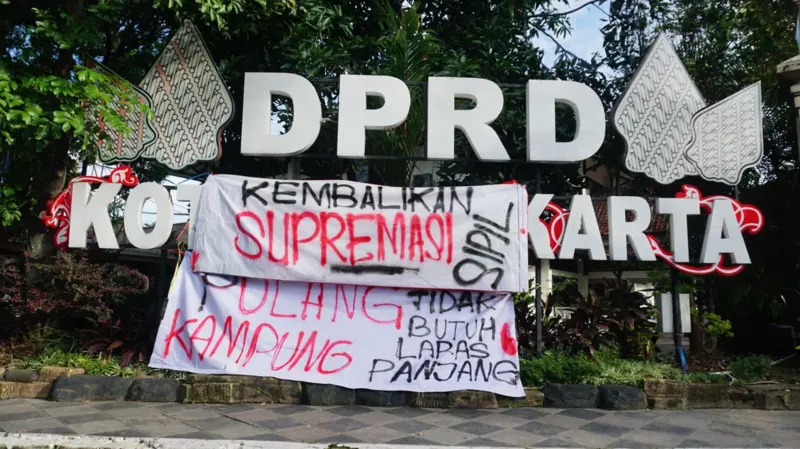 DPRD
KOT KARTA
KEMBALIKAN
SUPREMASI
SIPIL
PULANG
KAMPUNG
TIDAK
BUTUH
LAPAS
PANJANG